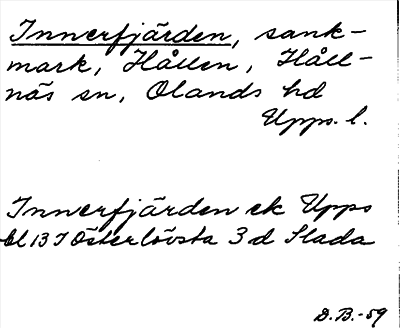 Innerfjärden, sank-
mark, Hållen, Håll-
näs sn, Olands hd
Upps. l.
Innerfjärden ek Upps
bl 13 I Österlövsta 3 d Slada
D.B.-59